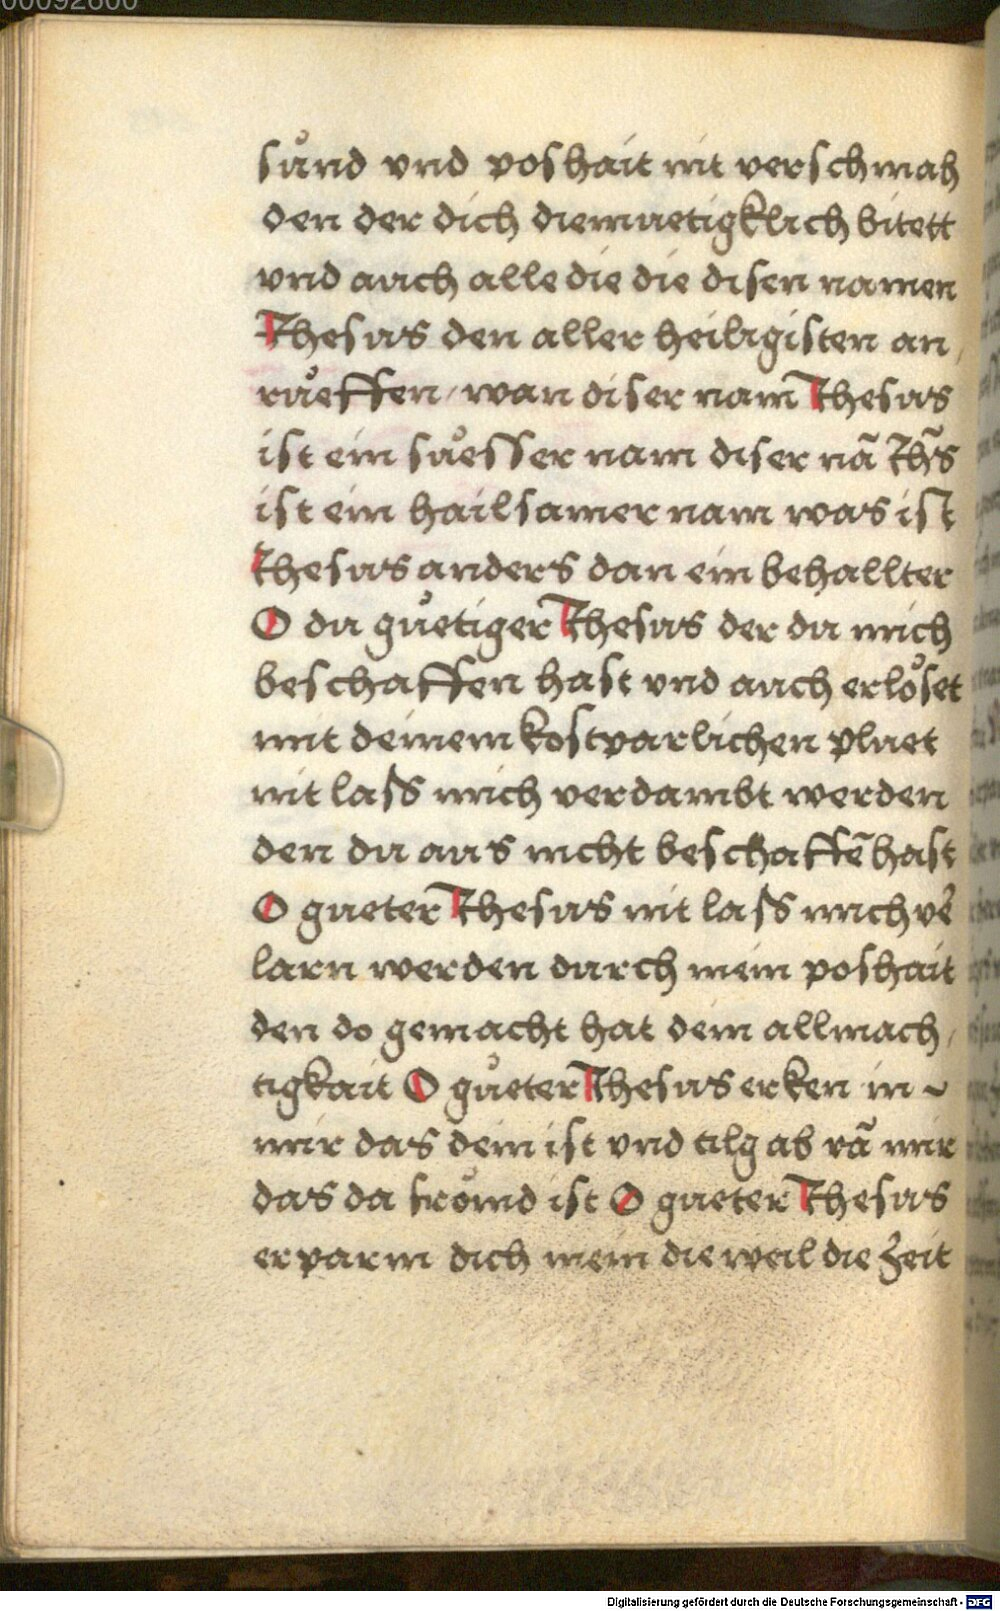 00092600
sůnd vnd poshait nit verschmah
den der dich diemuetigklich bitett
vnd auch alle die die disen namen
Jhesus den aller heiligisten an
růeffen / wan diser nam Jhesus
ist ein sůesser nam diser nā Jhs̄
ist ein hailsamer nam was ist
Jhesus anders dan ein behallter
O du gůetiger Jhesus der du mich
beschaffen hast vnd auch erlo̊set
mit deinem kostparlichen pluet
nit lass mich verdambt werden
den du aus nicht beschaffē hast
O gueter Jhesus nit lass mich v̄e
larn werden durch mein poshait
den do gemacht hat dein allmach /
tigkait O gůeter Jhesus erken in ~
mir das dein ist vnd tilg ab vā mir
das da fro̊md ist O gueter Jhesus
erparm dich mein die weil die Zeit
Digitalisierung gefördert durch die Deutsche Forschungsgemeinschaft - DFG